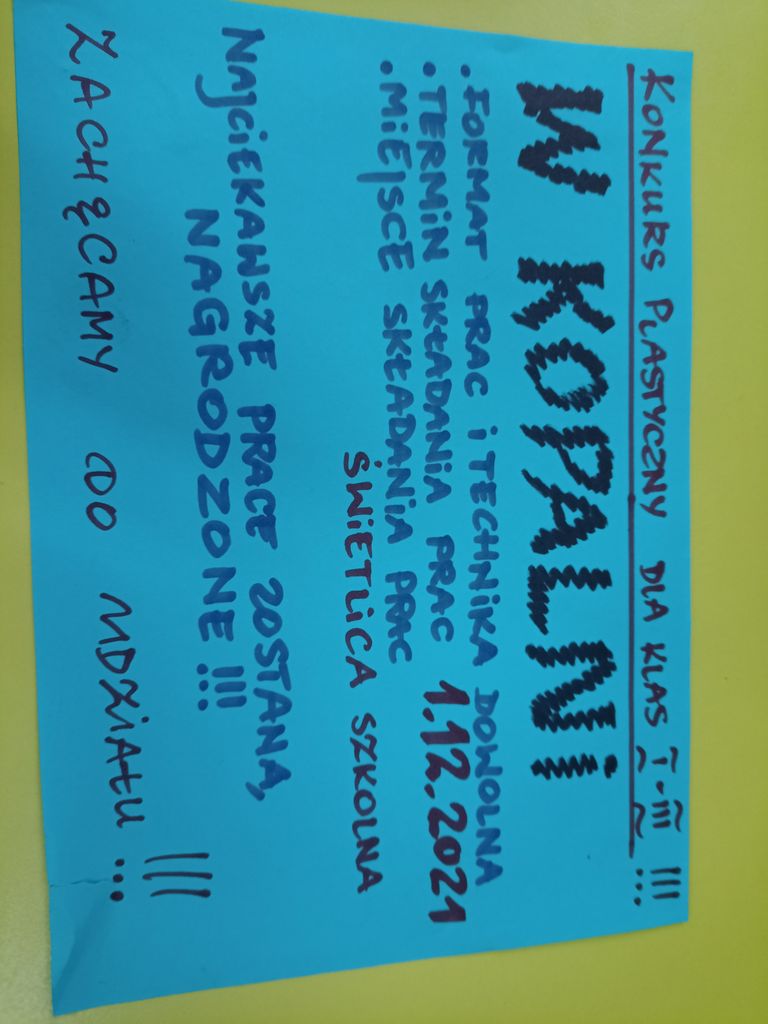 KONKURS PLASTYCZNY DLA KLAS I-III !!!
W KOPALNi
• FORMAT PRAC i TECHNIKA DOWOLNA
• TERMiN SKŁADANIA PRAC 1.12.2021
• MiEjSCE SKŁADANIA PRAC
ŚWiETLiCA SZKOLNA
NAjCiEKAWSZE PRACE ZOSTANĄ
NAGRODZONE !!!
ZACHĘCAMY DO UDZiAŁU !!!